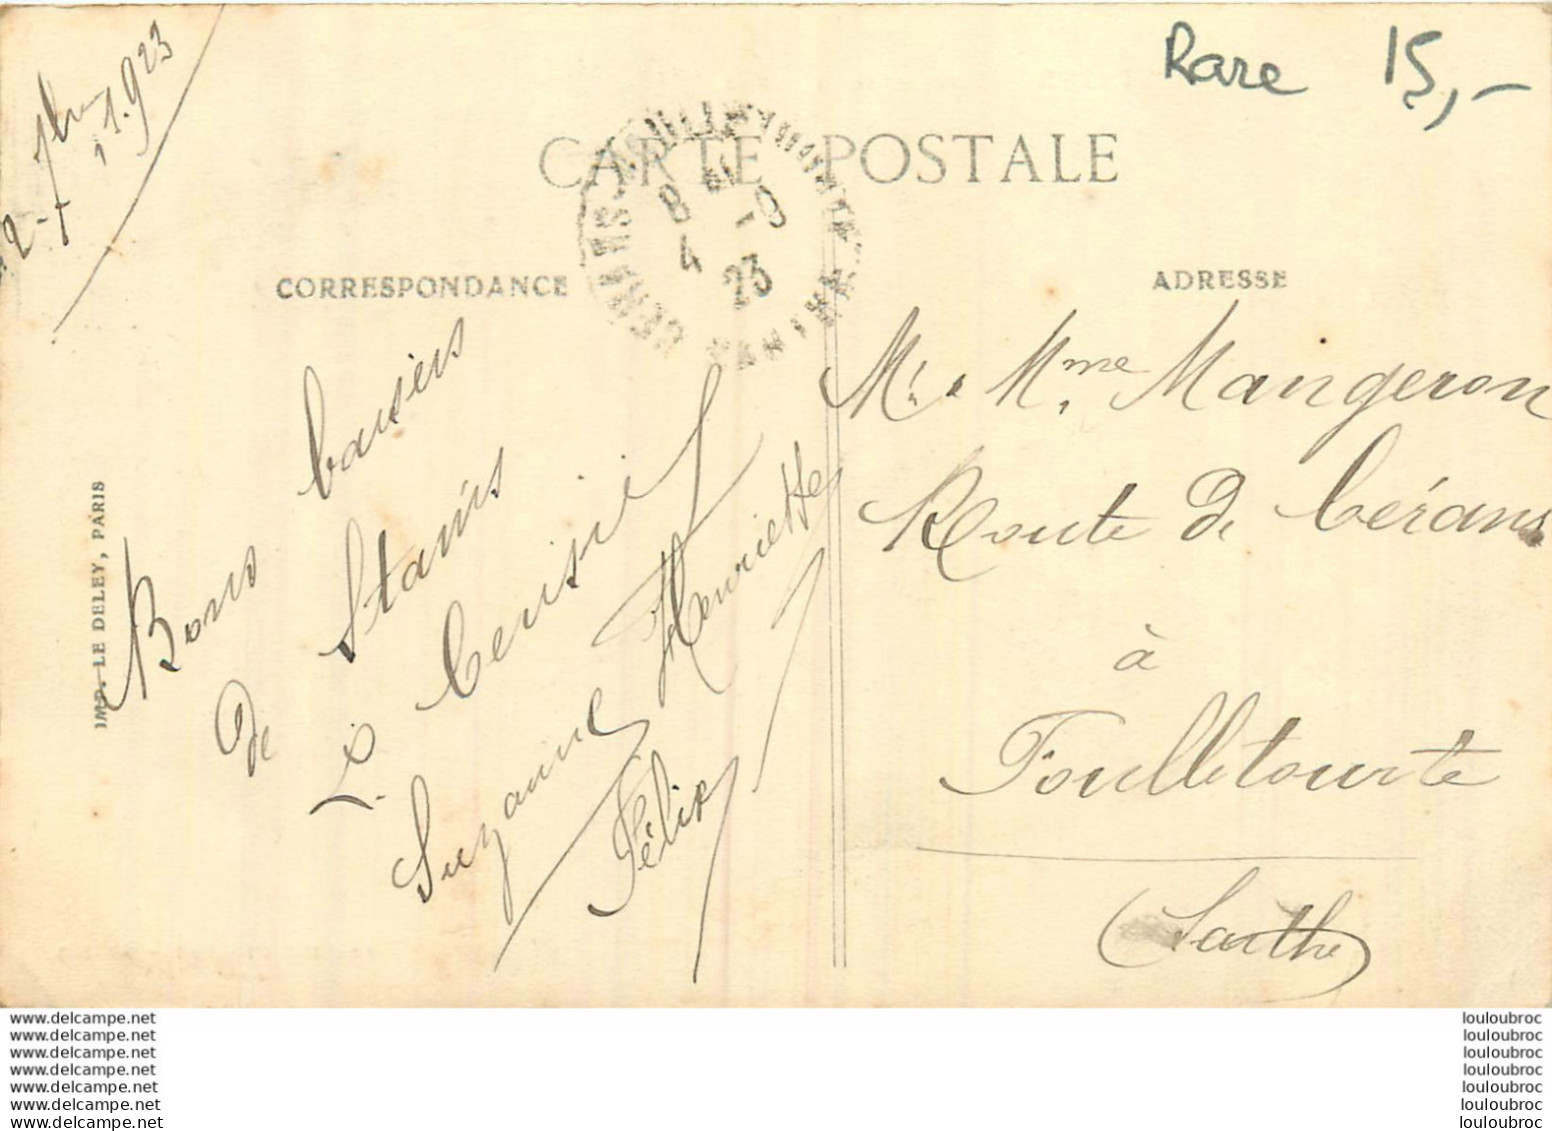 Rare 15,-
2-7bre 1923
CARTE POSTALE
8 -9
4 23
CORRESPONDANCE
ADRESSE
Bons baisers
de Stanis
L. Cerisie
Suzanne Henriette
Félix
IMP. LE DELEY, PARIS
Mr. & Mme. Mangeron
Route de Cérans
à
Foulletourte
(Sarthe)
www.delcampe.net
www.delcampe.net
www.delcampe.net
www.delcampe.net
www.delcampe.net
www.delcampe.net
www.delcampe.net
louloubroc
louloubroc
louloubroc
louloubroc
louloubroc
louloubroc
louloubroc